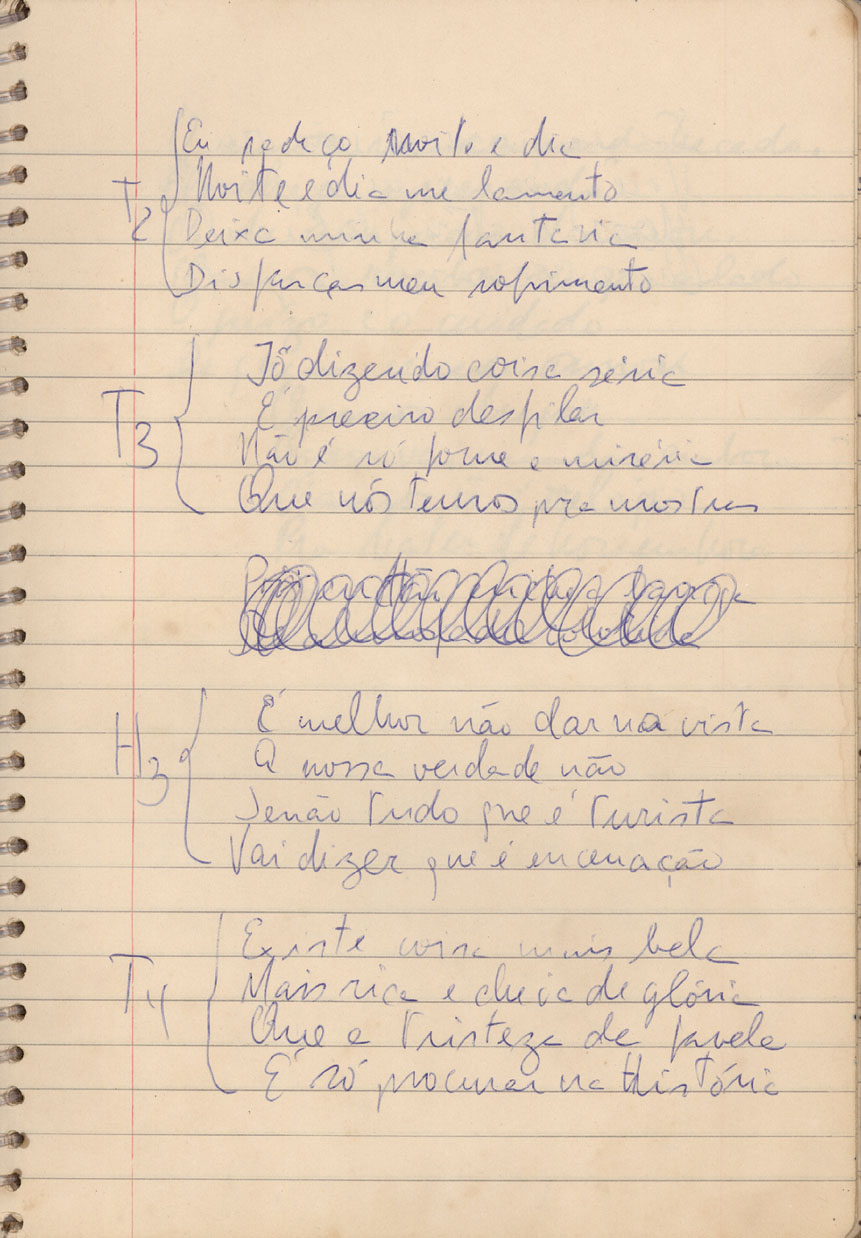 T2
Eu padeço noite e dia
Noite e dia me lamento
Deixa minha fantasia
Disfarçar meu sofrimento
T3
Tô dizendo coisa séria
É preciso desfilar
Não é só fome e miséria
Que nós temos pra mostrar
H3
É melhor não dar na vista
A nossa verdade não
Senão tudo que é turista
Vai dizer que é encenação
T4
Existe coisa mais bela
Mais rica e cheia de glória
Que a tristeza da favela
É só procurar na História